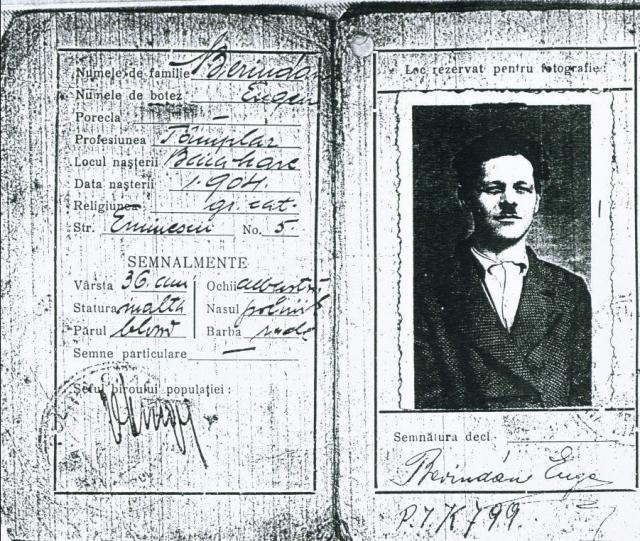 Numele de familie Berindan
Numele de botez Eugen
Porecla —
Profesiunea Tâmplar
Locul nașterii Baia-Mare
Data nașterii 1904.
Religiunea gr. cat.
Str. Eminescu No. 5
SEMNALMENTE
Vârsta 36. ani Ochii albaștri
Statura înaltă Nasul potrivit
Părul blond Barba rade
Semne particulare —
Șeful biroului populației :
Loc rezervat pentru fotografie:
Semnătura decl.
Berindan Euge
P. 1 K 799.